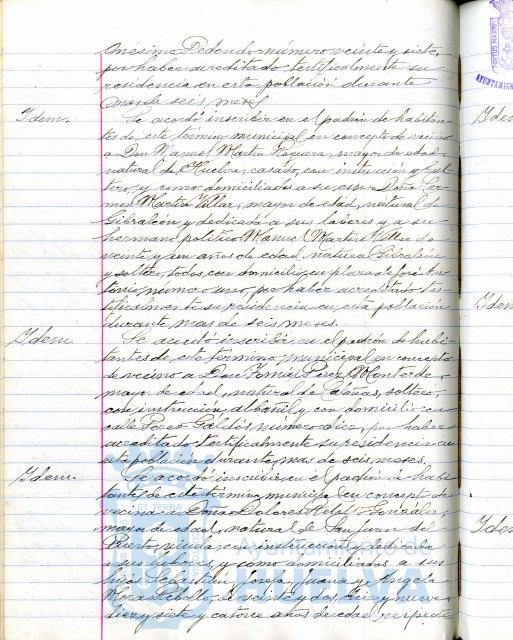 Onésimo Redondo número veinte y siete,
por haber acreditado testificalmente su
residencia en esta población durante
más de seis meses
Idem. Se acordó inscribir en el padrón de habitan-
tes de este término municipal en concepto de vecino
a Don Manuel Martín, mayor de edad,
natural de Huelva, casado, con instrucción y
y como domiciliados a su esposa Doña Car-
men Martín Villar, mayor de edad, natural de
Gibraleón y dedicada a sus labores y a su
hermano político Manuel Martín Villar de
veinte y un años de edad natural Gibraleón
y soltero, todos con domicilio en plaza de José An-
tonio, número uno, por haber acreditado tes-
tificalmente su residencia en esta población
durante mas de seis meses.
Idem. Se acordó inscribir en el padrón de habi-
tantes de este término municipal en concepto
de vecino a Don Tomás Pérez
mayor de edad, natural de Calañas, soltero,
con instrucción, albañil y con domicilio en
calle Pérez Galdós número, por haber
acreditado testificalmente su residencia en
esta población durante mas de seis meses.
Idem. Se acordó inscribir en el padrón de habi-
tantes de este término municipal en concepto de
vecina a Doña Dolores González
mayor de edad, natural de San Juan del
Puerto, viuda, con instrucción y dedicada
a sus labores, y como domiciliados a sus
hijos Sebastián, Josefa, Juana y Angela
Mora Rebollo, de veinte y dos, diez y nueve,
diez y siete y catorce años de edad respecti-
Ayuntamiento de
HUELVA
Idem
Idem
Idem
AYUNTAMIEN